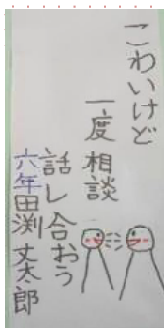 こわいけど
一度 相談
話し合おう
六年田渕 丈太郎